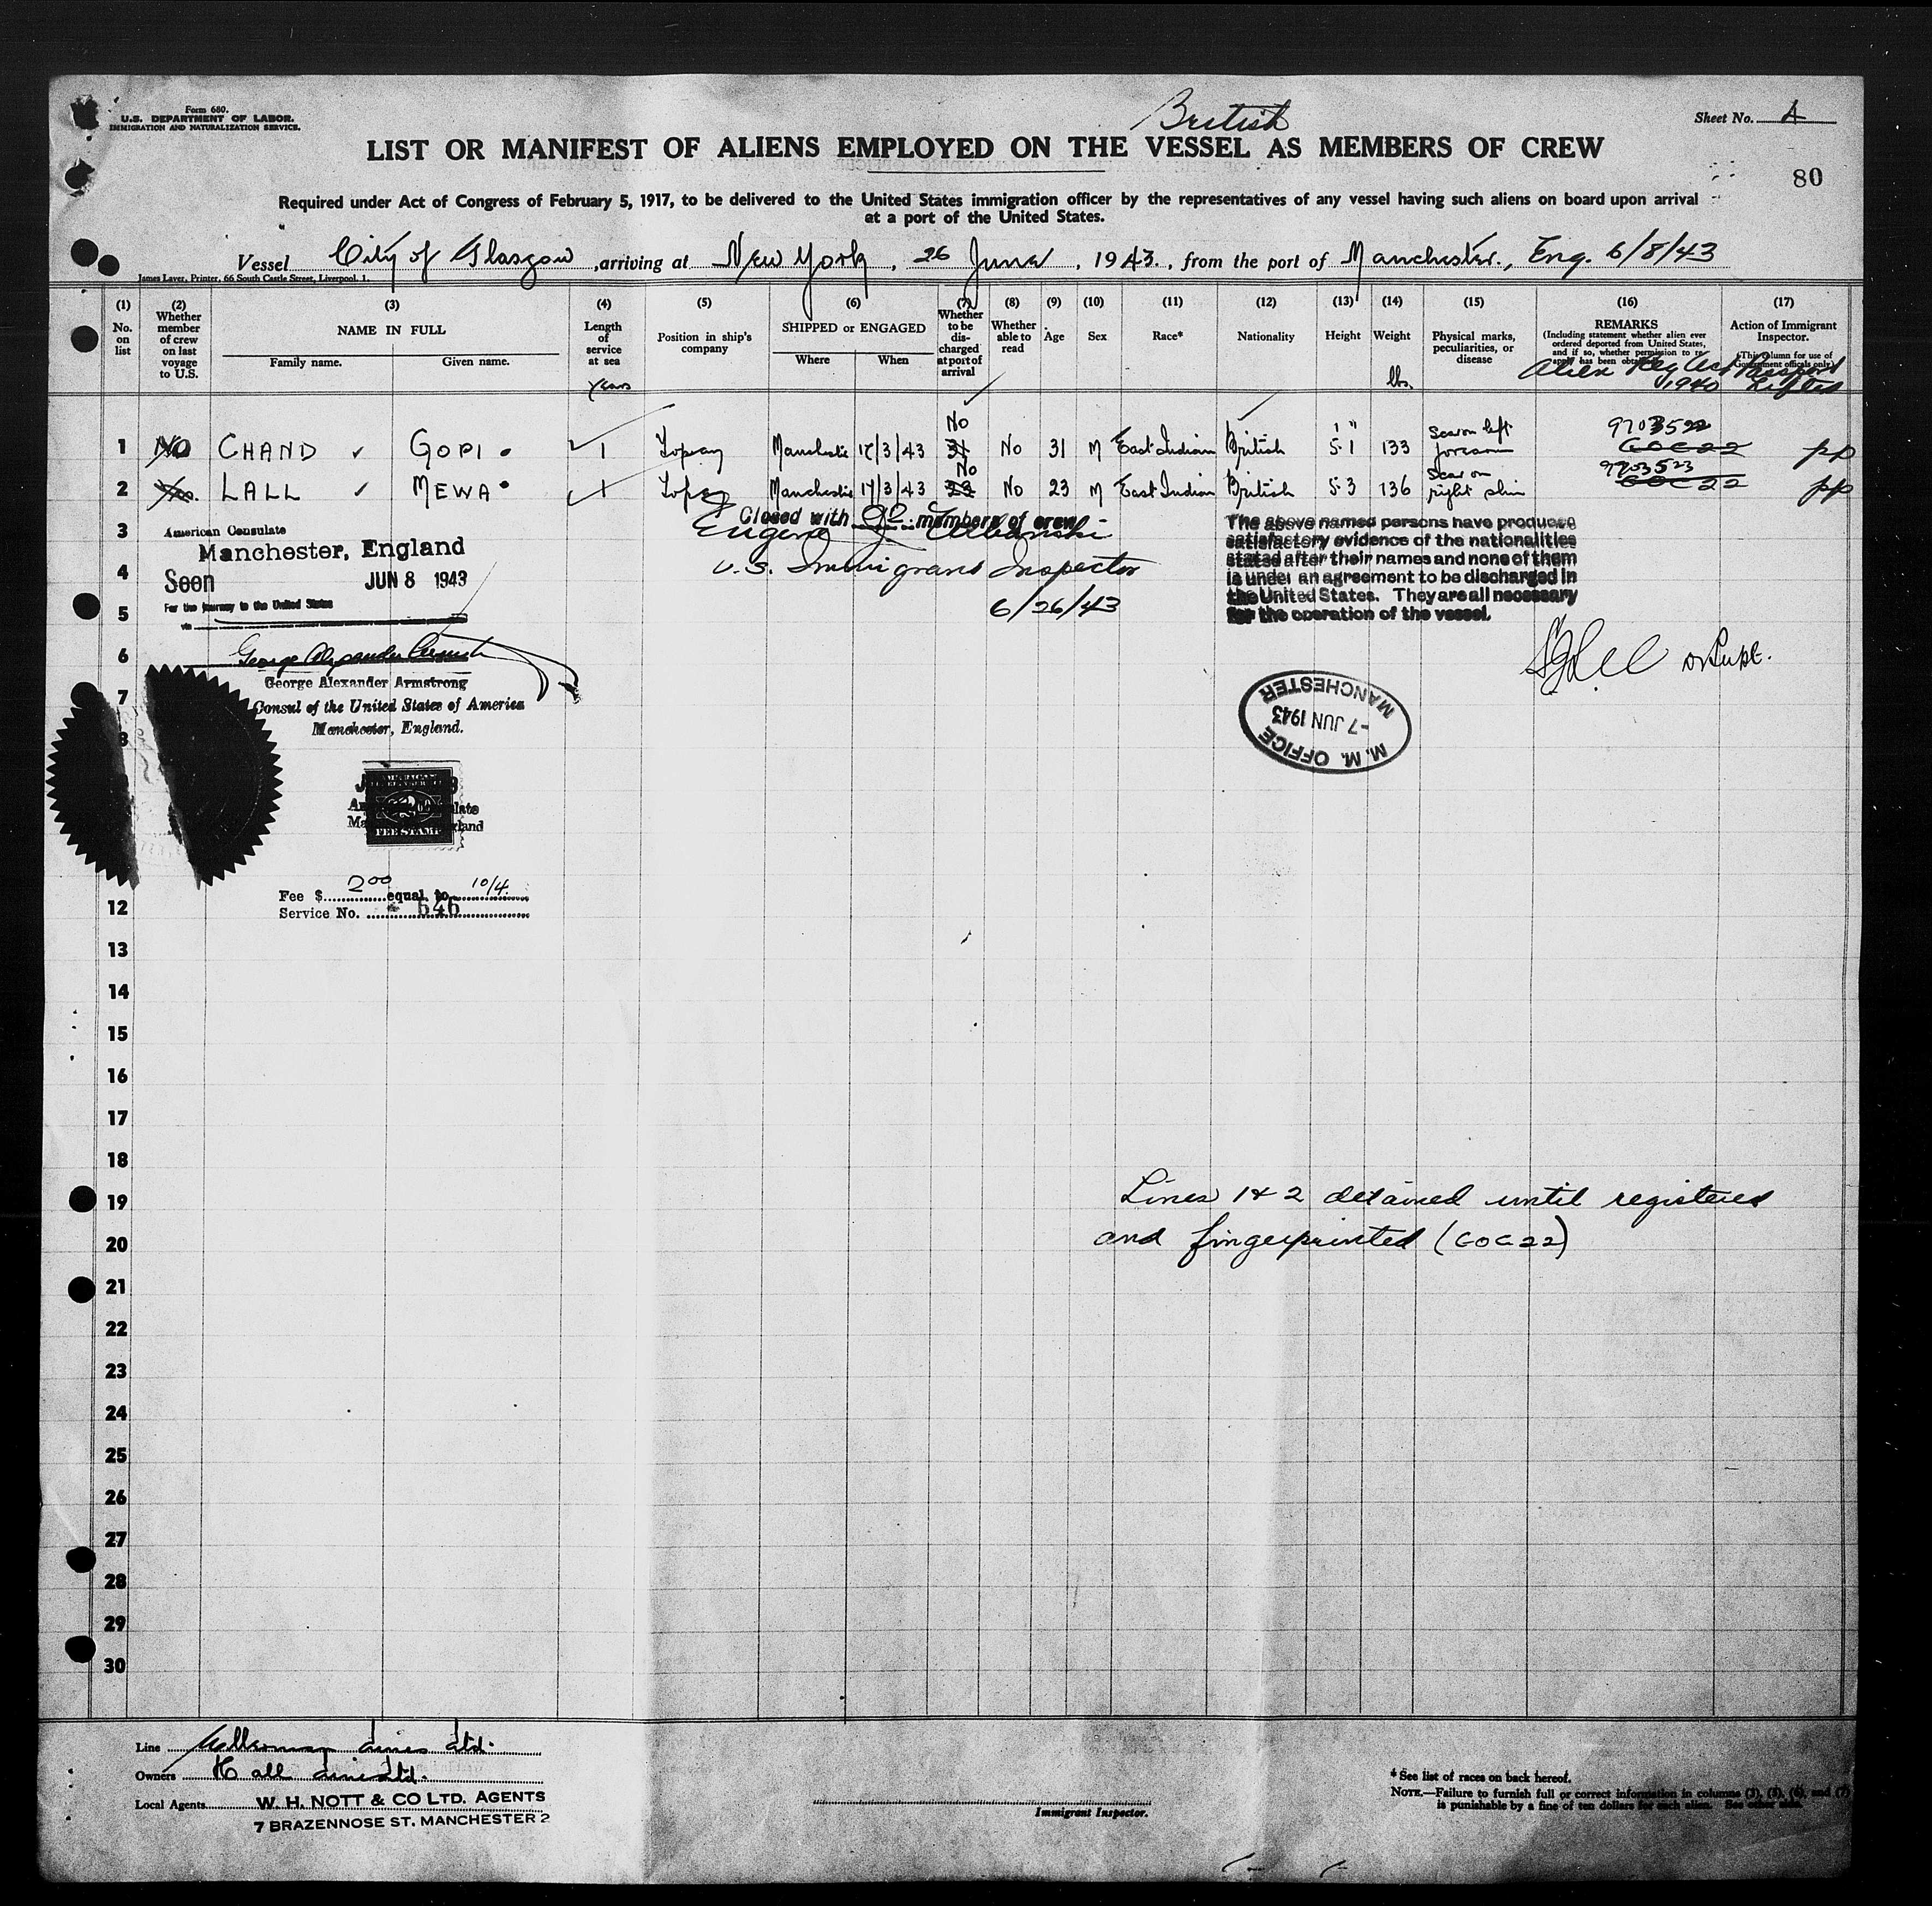 Form 680.
U.S. DEPARTMENT OF LABOR.
IMMIGRATION AND NATURALIZATION SERVICE.
British
Sheet No. A
LIST OR MANIFEST OF ALIENS EMPLOYED ON THE VESSEL AS MEMBERS OF CREW
80
Required under Act of Congress of February 5, 1917, to be delivered to the United States immigration officer by the representatives of any vessel having such aliens on board upon arrival
at a port of the United States.
Vessel City of Glasgow, arriving at New York, 26 June, 1943., from the port of Manchester., Eng. 6/8/43
James Laver, Printer, 66 South Castle Street, Liverpool. 1.
(1) No. on list
(2) Whether member of crew on last voyage to U.S.
(3) NAME IN FULL Family name. Given name.
(4) Length of service at sea years
(5) Position in ship's company
(6) SHIPPED OR ENGAGED Where When
(7) Whether to be discharged at port of arrival
(8) Whether able to read
(9) Age
(10) Sex
(11) Race*
(12) Nationality
(13) Height
(14) Weight lbs.
(15) Physical marks, peculiarities, or disease
(16) REMARKS (Including statement whether alien ever ordered deported from United States, and if so, whether permission to re-apply has been obtained)
Alien Reg Act 1940
(17) Action of Immigrant Inspector. (This column for use of Government officials only)
Passport Lifted
1 No CHAND GOPI 1 Topay Manchester 17/3/43 31 No No 31 M East Indian British 5' 1" 133 Scar on left forearm 9703522 GOC22 pp
2 Yes. LALL MEWA 1 Manchester 17/3/43 23 No No 23 M East Indian British 5·3 136 Scar on right shin 9703523 GOC22 pp
3
American Consulate
Manchester, England
Seen JUN 8 1943
For the journey to the United States
via
Closed with members of crew
Eugene Urbanski
U.S. Immigrant Inspector
6/26/43
The above named persons have produced
satisfactory evidence of the nationalities
stated after their names and none of them
is under an agreement to be discharged in
the United States. They are all necessary
for the operation of the vessel.
4
5
6
7
8
George Alexander Armstrong
Consul of the United States of America
Manchester, England.
M. M. OFFICE
-7 JUN 1943
MANCHESTER
2
FEE STAMP
Fee $ 2 00 equal to 10/4.
Service No. 546
12
13
14
15
16
17
18
19
20
Lines 1 & 2 detained until registered
and fingerprinted (GOC22)
21
22
23
24
25
26
27
28
29
30
Line Ellerman Lines Ltd.
Owners Hall Line Ltd.
Local Agents W. H. NOTT & CO LTD. AGENTS
7 BRAZENNOSE ST. MANCHESTER 2
Immigrant Inspector.
* See list of races on back hereof.
NOTE.—Failure to furnish full or correct information in columns (3), (5), (6), and (7)
is punishable by a fine of ten dollars for each alien. See other side.